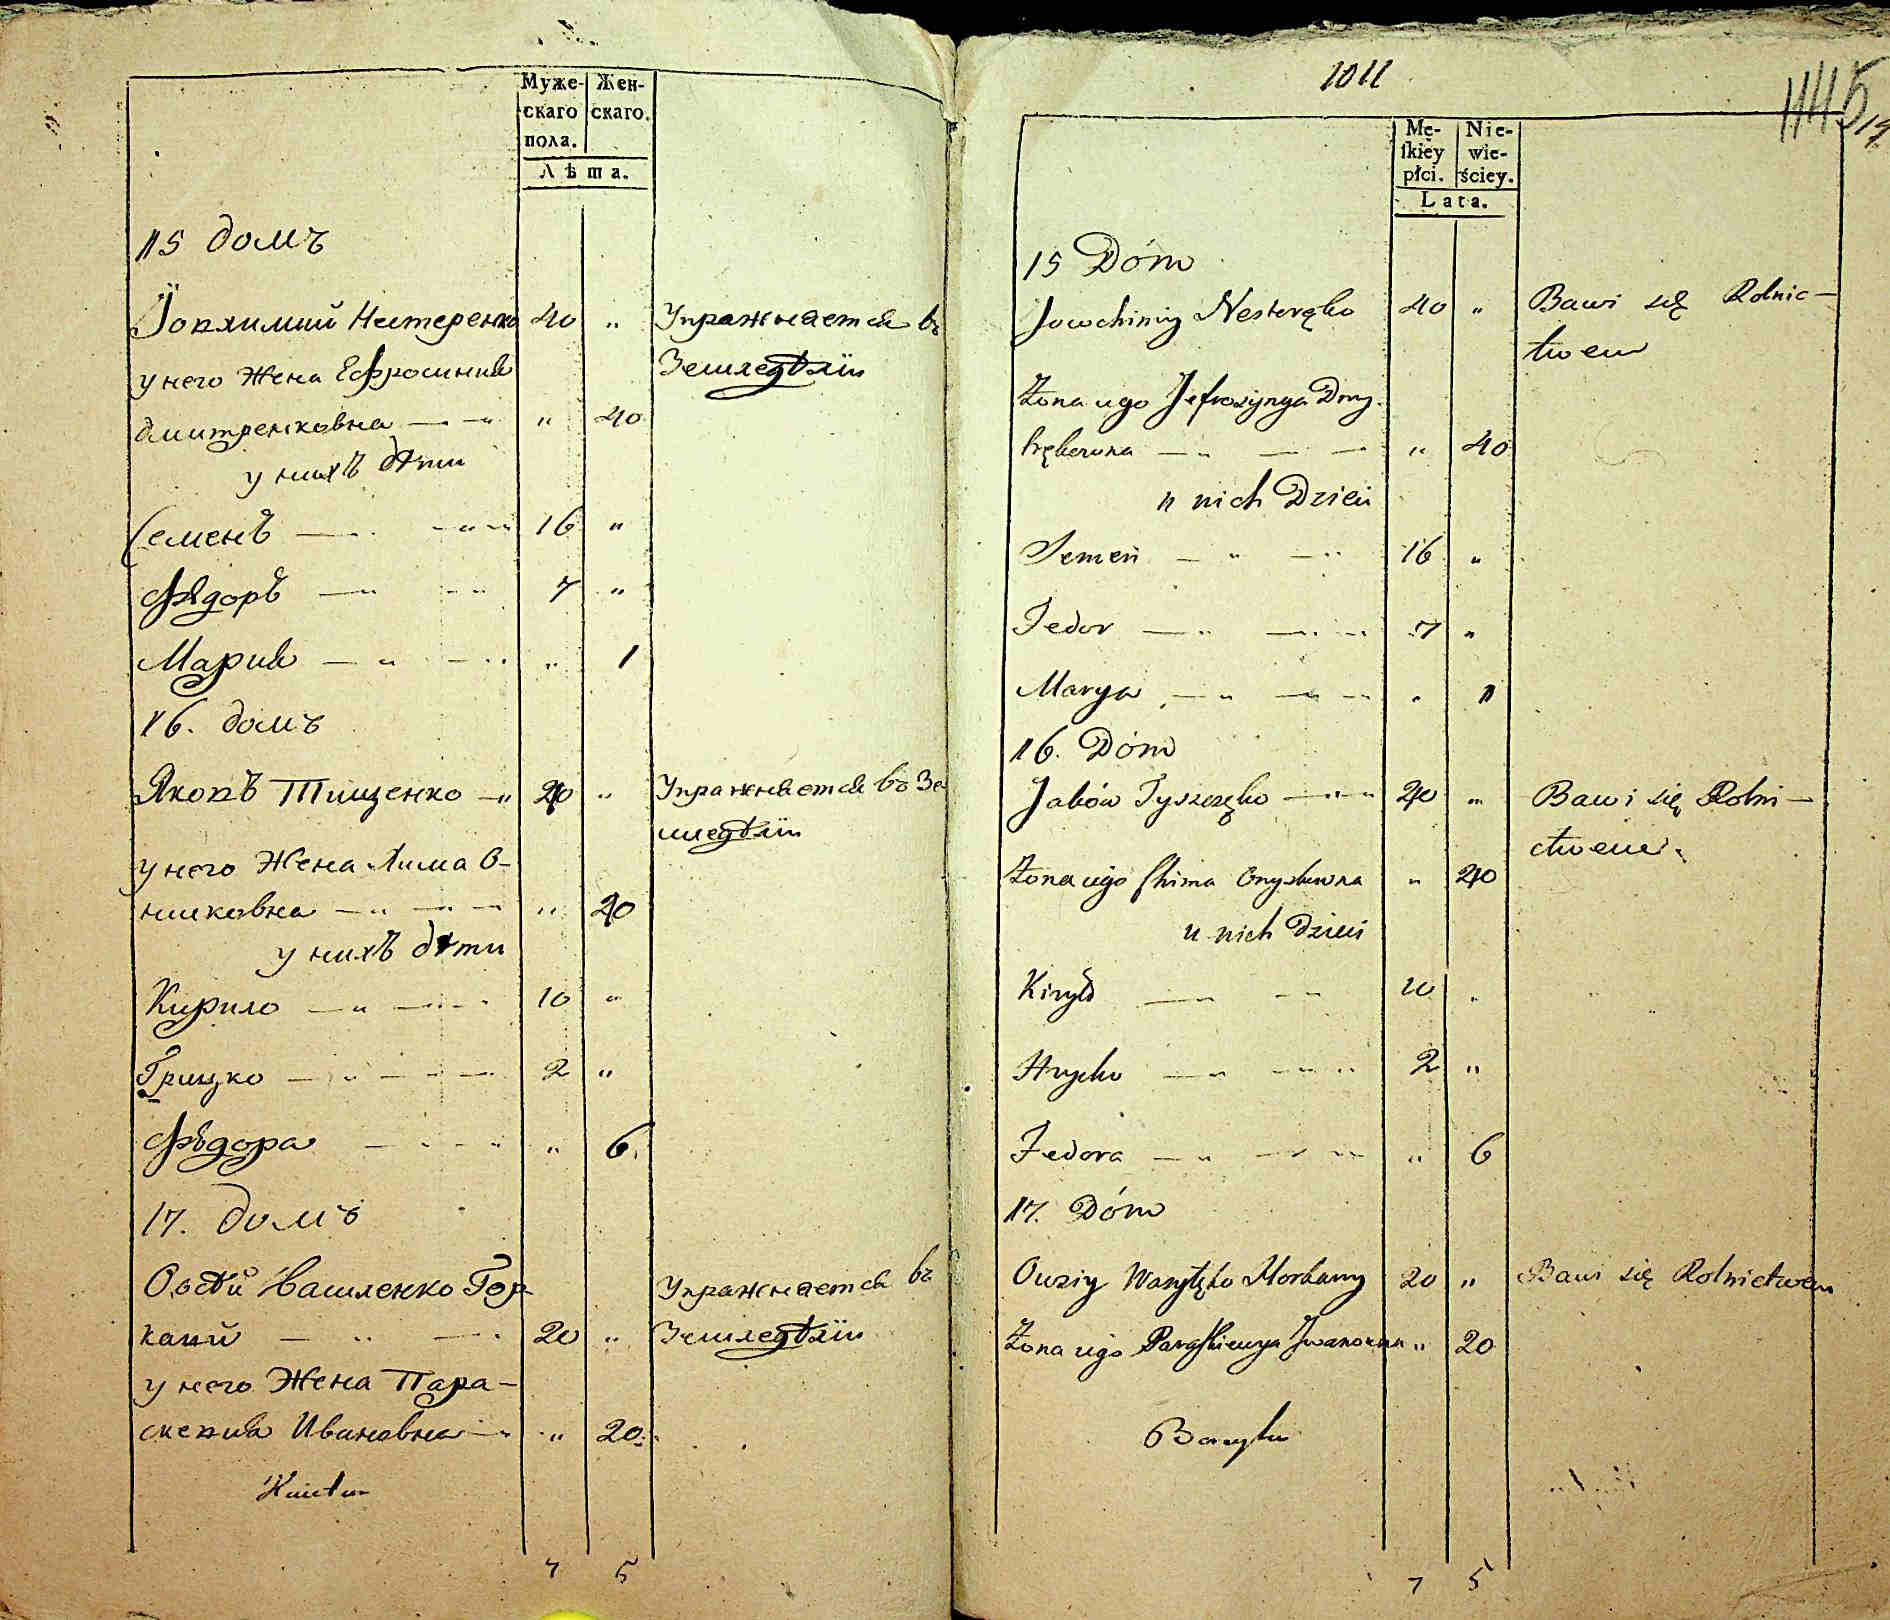 Муже- Жен-
скаго скаго.
пола.
Лѣта.
15 домъ
Іовхимий Нестеренко 40 " Упражняется въ
Земледѣлїи
у него Жена Ефросиния
Дмитренковна — " " 40
у нихъ дѣти
Семенъ — — " 16 "
Ѳедоръ — " — " 7 "
Мария — " — " " 1
16. домъ
Яковъ Тищенко — " 40 " Упражняется въ Зе
мледѣлїи
у него Жена Хима О-
нисковна — " — " 40
у нихъ дѣти
Кирило — " — 10 "
Грицко — " — 2 "
Ѳедора — — " " 6.
17. домъ
Овсѣй Василенко Гор- Упражняется въ
каны — " — 20 " Земледѣлїи
у него Жена Пара-
скевия Ивановна — " " 20.
7 5
1011
1145
Mę- Nie-
skiey wie-
płci. ściey.
Lata.
15 Dóm
Jowchimiy Nesteręko 40 " Bawi się Rolnic-
twem
Żona iego Jefrozynya Dmy-
trękowna — " — — " 40
u nich Dzieci
Semen — " — " 16 "
Fedor — " — " 7 "
Marya — " — " " 1
16. Dóm
Jakow Tyszczęko — " " 40 " Bawi się Rolni-
ctwem
Żona iego Chima Onyskowna " 40
u nich Dzieci
Kiryło — " — " 10 "
Hrycko — " — " 2 "
Fedora — " — " " 6
17. Dóm
Owsiy Wasylęko Horkany 20 " Bawi się Rolnictwem
Żona iego Paraskiewya Iwanowna " 20
7 5